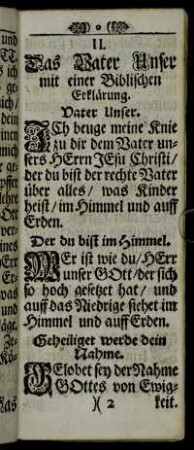 II.
Das Vater Unser
mit einer Biblischen
Erklärung.
Vater Unser.
ICh beuge meine Knie
zu dir dem Vater un-
sers HErrn JEsu Christi/
der du bist der rechte Vater
über alles/ was Kinder
heist/ im Himmel und auff
Erden.
Der du bist im Himmel.
WEr ist wie du/ HErr
unser GOtt/ der sich
so hoch gesetzet hat/ und
auff das Niedrige siehet im
Himmel und auff Erden.
Geheiliget werde dein
Nahme.
GElobet sey der Nahme
GOttes von Ewig-
)( 2 keit.